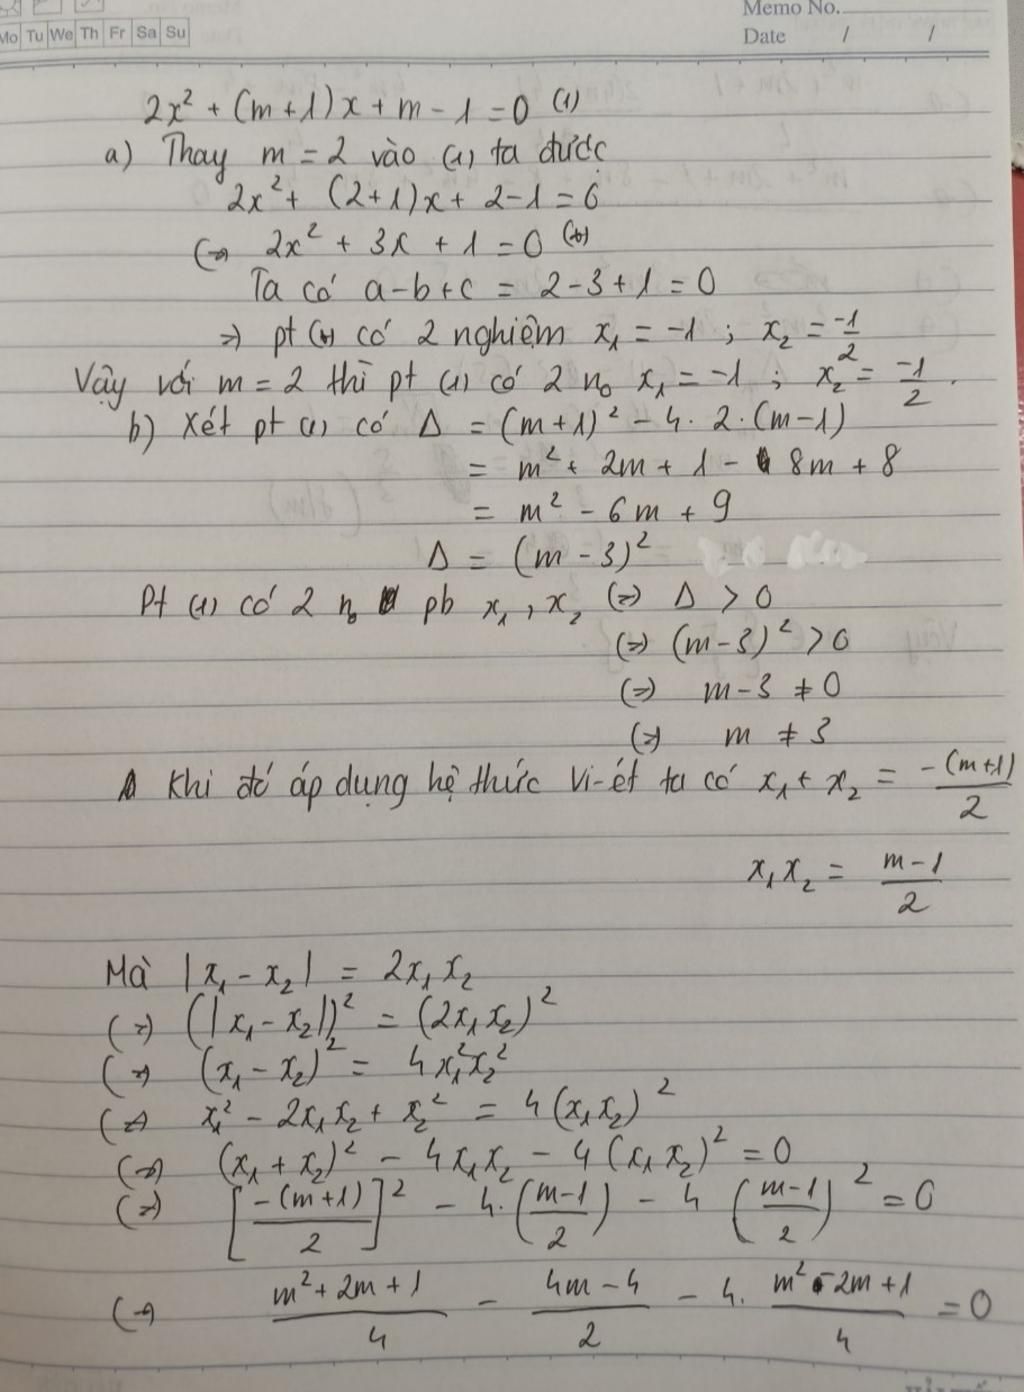 Memo No.
Mo Tu We Th Fr Sa Su
Date / /
2x² + (m+1)x + m - 1 = 0 (1)
a) Thay m = 2 vào (1) ta được
2x² + (2+1)x + 2-1 = 0
(=) 2x² + 3x + 1 = 0 (*)
Ta có a-b+c = 2-3+1 = 0
=) pt (*) có 2 nghiệm x₁ = -1 ; x₂ = -1/2
Vậy với m = 2 thì pt (1) có 2 n₀ x₁ = -1 ; x₂ = -1/2 .
b) Xét pt (1) có Δ = (m+1)² - 4. 2.(m-1)
= m² + 2m + 1 - 8m + 8
= m² - 6m + 9
Δ = (m - 3)²
Pt (1) có 2 n₀ pb x₁ , x₂ (=) Δ > 0
(=) (m-3)² > 0
(=) m-3 ≠ 0
(=) m ≠ 3
Khi đó áp dụng hệ thức Vi-ét ta có x₁ + x₂ = -(m+1)/2
x₁x₂ = (m-1)/2
Mà |x₁ - x₂| = 2x₁x₂
(=) (|x₁-x₂|)² = (2x₁x₂)²
(=) (x₁-x₂)² = 4x₁²x₂²
(=) x₁² - 2x₁x₂ + x₂² = 4(x₁x₂)²
(=) (x₁+x₂)² - 4x₁x₂ - 4(x₁x₂)² = 0
(=) [-(m+1)/2]² - 4.((m-1)/2) - 4((m-1)/2)² = 0
(=) (m²+2m+1)/4 - (4m-4)/2 - 4. (m²-2m+1)/4 = 0